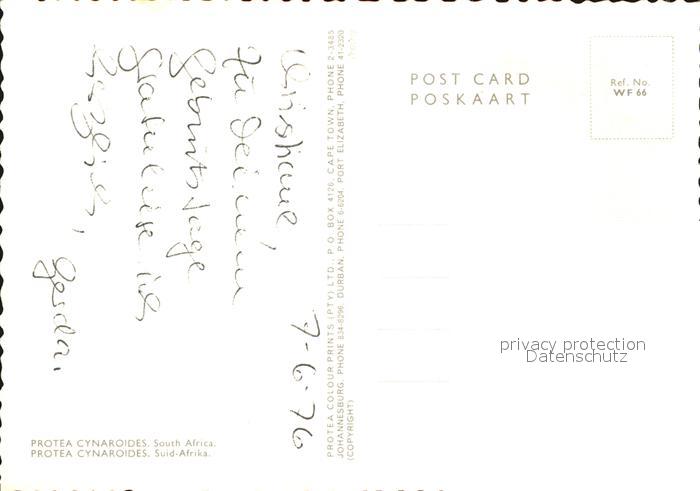 7-6-76
Christiane,
zu Deinem
Geburtstage
gratuliere ich
herzlich,
Gerda.
PROTEA CYNAROIDES. South Africa.
PROTEA CYNAROIDES. Suid-Afrika.
PROTEA COLOUR PRINTS (PTY) LTD., P.O. BOX 4126, CAPE TOWN, PHONE 2-3485
JOHANNESBURG, PHONE 834-8296. DURBAN, PHONE 6-6204. PORT ELIZABETH, PHONE 41-2320
(COPYRIGHT)
POST CARD
POSKAART
Ref. No.
WF 66
privacy protection
Datenschutz